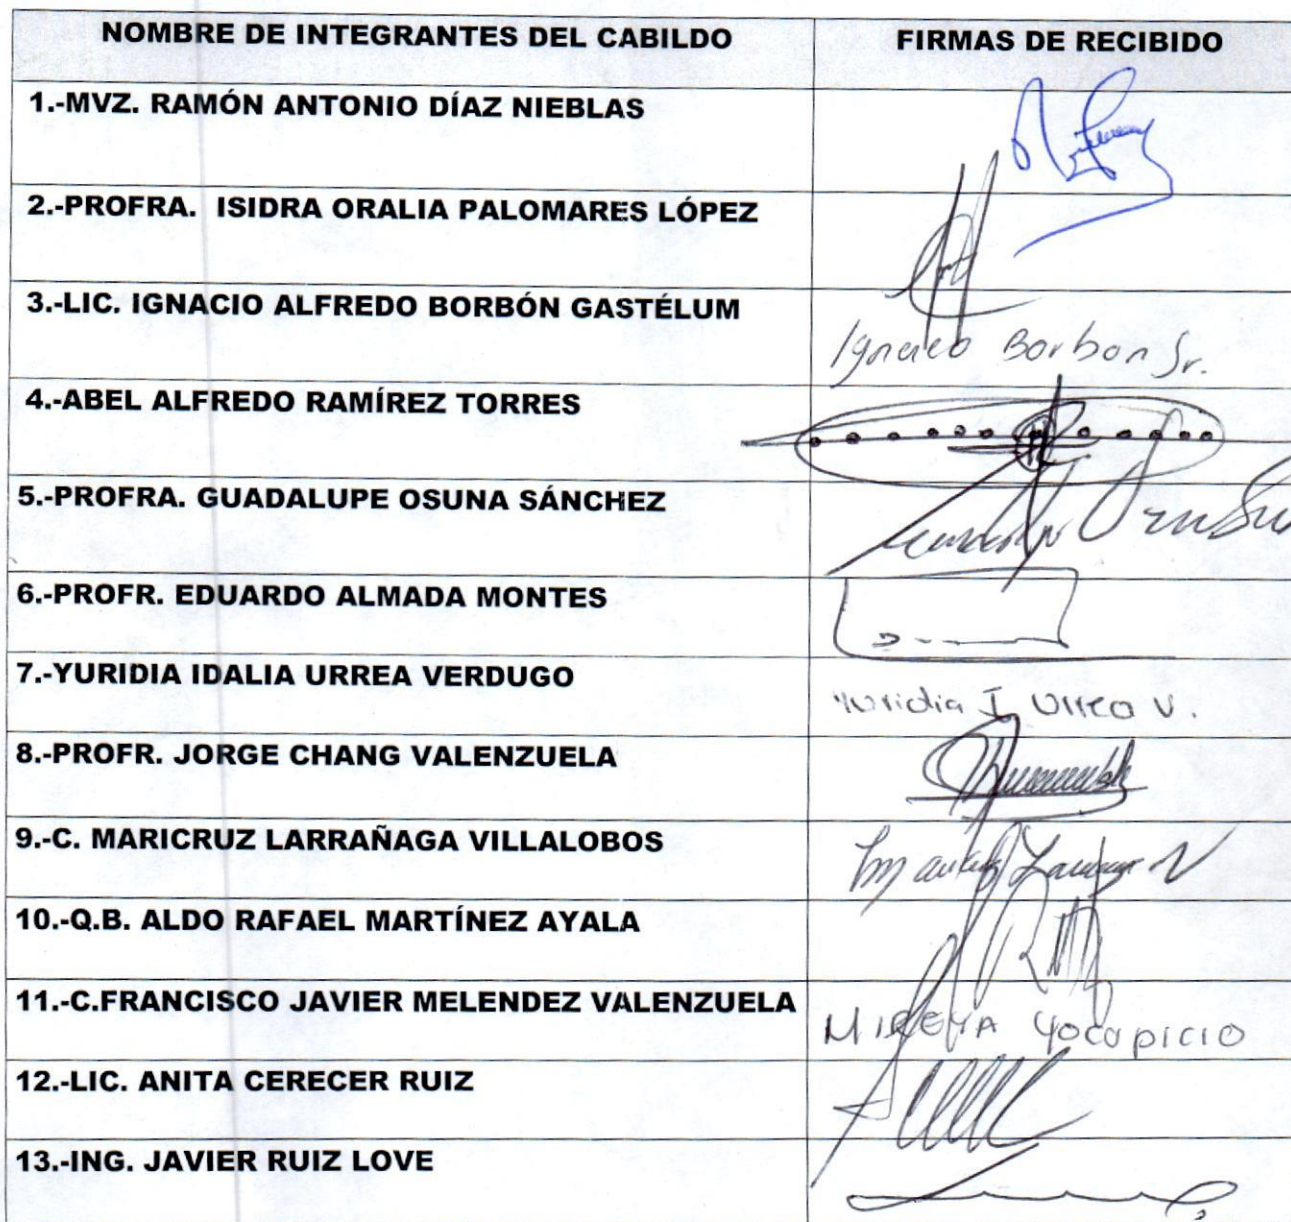 NOMBRE DE INTEGRANTES DEL CABILDO FIRMAS DE RECIBIDO
1.-MVZ. RAMÓN ANTONIO DÍAZ NIEBLAS
2.-PROFRA. ISIDRA ORALIA PALOMARES LÓPEZ
3.-LIC. IGNACIO ALFREDO BORBÓN GASTÉLUM
Ignacio Borbon Jr.
4.-ABEL ALFREDO RAMÍREZ TORRES
5.-PROFRA. GUADALUPE OSUNA SÁNCHEZ
6.-PROFR. EDUARDO ALMADA MONTES
7.-YURIDIA IDALIA URREA VERDUGO
Yuridia I Urrea V.
8.-PROFR. JORGE CHANG VALENZUELA
9.-C. MARICRUZ LARRAÑAGA VILLALOBOS
10.-Q.B. ALDO RAFAEL MARTÍNEZ AYALA
11.-C.FRANCISCO JAVIER MELENDEZ VALENZUELA
MIREYA Yocupicio
12.-LIC. ANITA CERECER RUIZ
13.-ING. JAVIER RUIZ LOVE